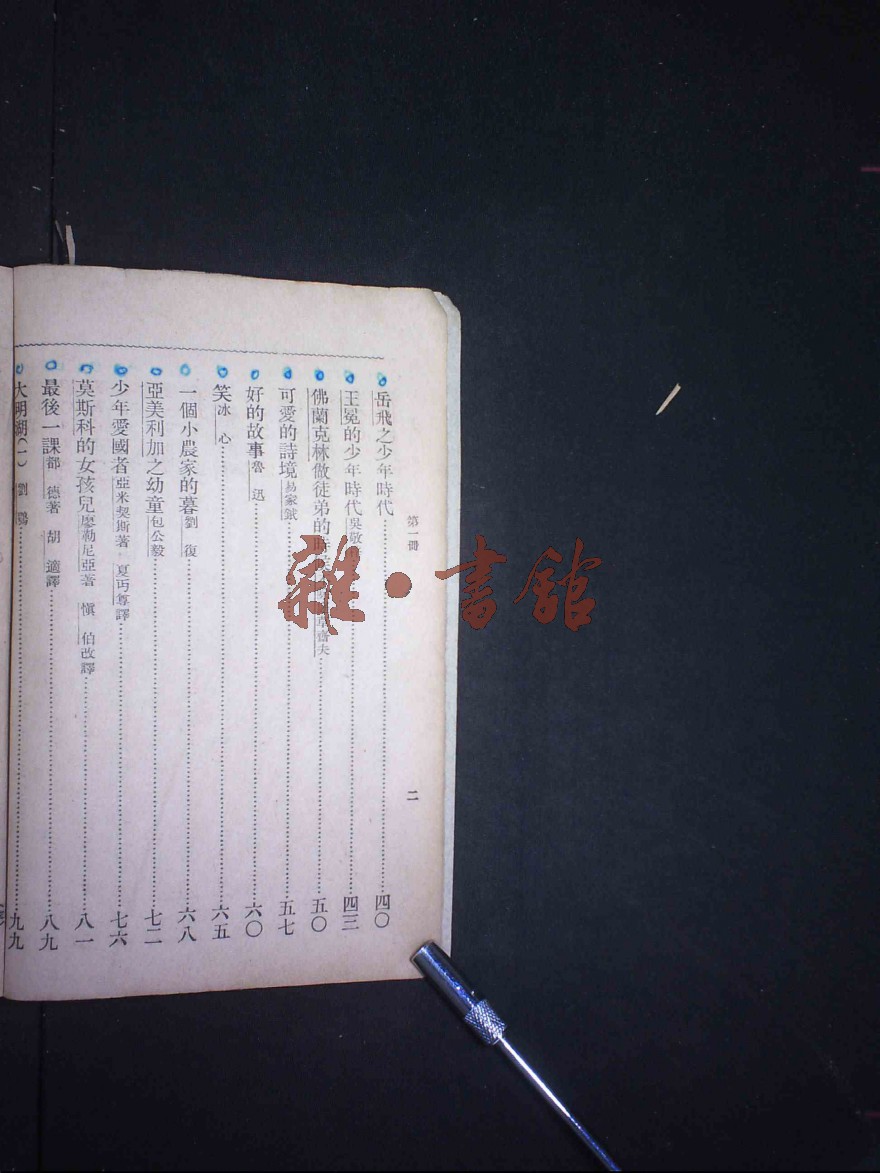 第一冊
二
岳飛之少年時代……四〇
王冕的少年時代 吳敬……四三
佛蘭克林做徒弟的時 夫……五〇
可愛的詩境 易家鉞……五七
好的故事 魯迅……六〇
笑 冰心……六五
一個小農家的暮 劉復……六八
亞美利加之幼童 包公毅……七二
少年愛國者 亞米契斯著 夏丏尊譯……七六
莫斯科的女孩兒 廖勒尼亞著 愼伯改譯……八一
最後一課 都德著 胡適譯……八九
大明湖（一） 劉鶚……九九
雜·書館